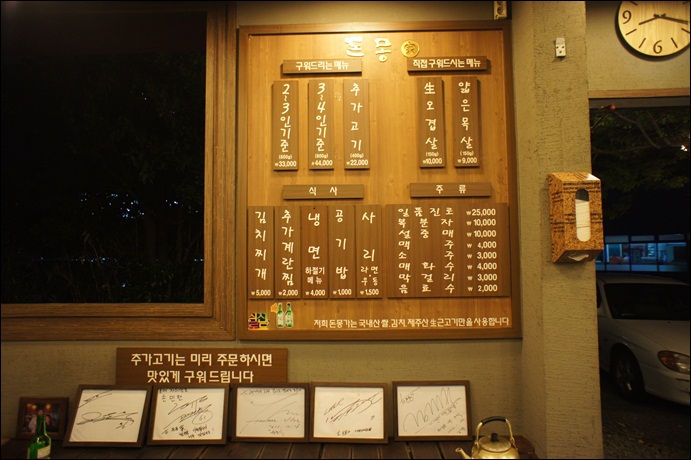 돈몽
구워드리는 메뉴
직접구워드시는 메뉴
2~3인기준 (600g) ₩33,000
3~4인기준 (800g) ₩44,000
추가고기 (400g) ₩22,000
生오겹살 (1인) ₩10,000
얇은목살 ₩9,000
식 사
주 류
김치찌개 ₩5,000
추가계란찜 ₩2,000
냉면 하절기메뉴 ₩4,000
공기밥 ₩1,000
사리 라면 우동 ₩1,500
일품진로 ₩25,000
복분자 ₩10,000
설중매 ₩10,000
맥주 ₩4,000
소주 ₩3,000
매화수 ₩4,000
막걸리 ₩3,000
음료수 ₩2,000
저희 돈몽가는 국내산 쌀, 김치, 제주산 生근고기만을 사용합니다
추가고기는 미리 주문하시면
맛있게 구워드립니다